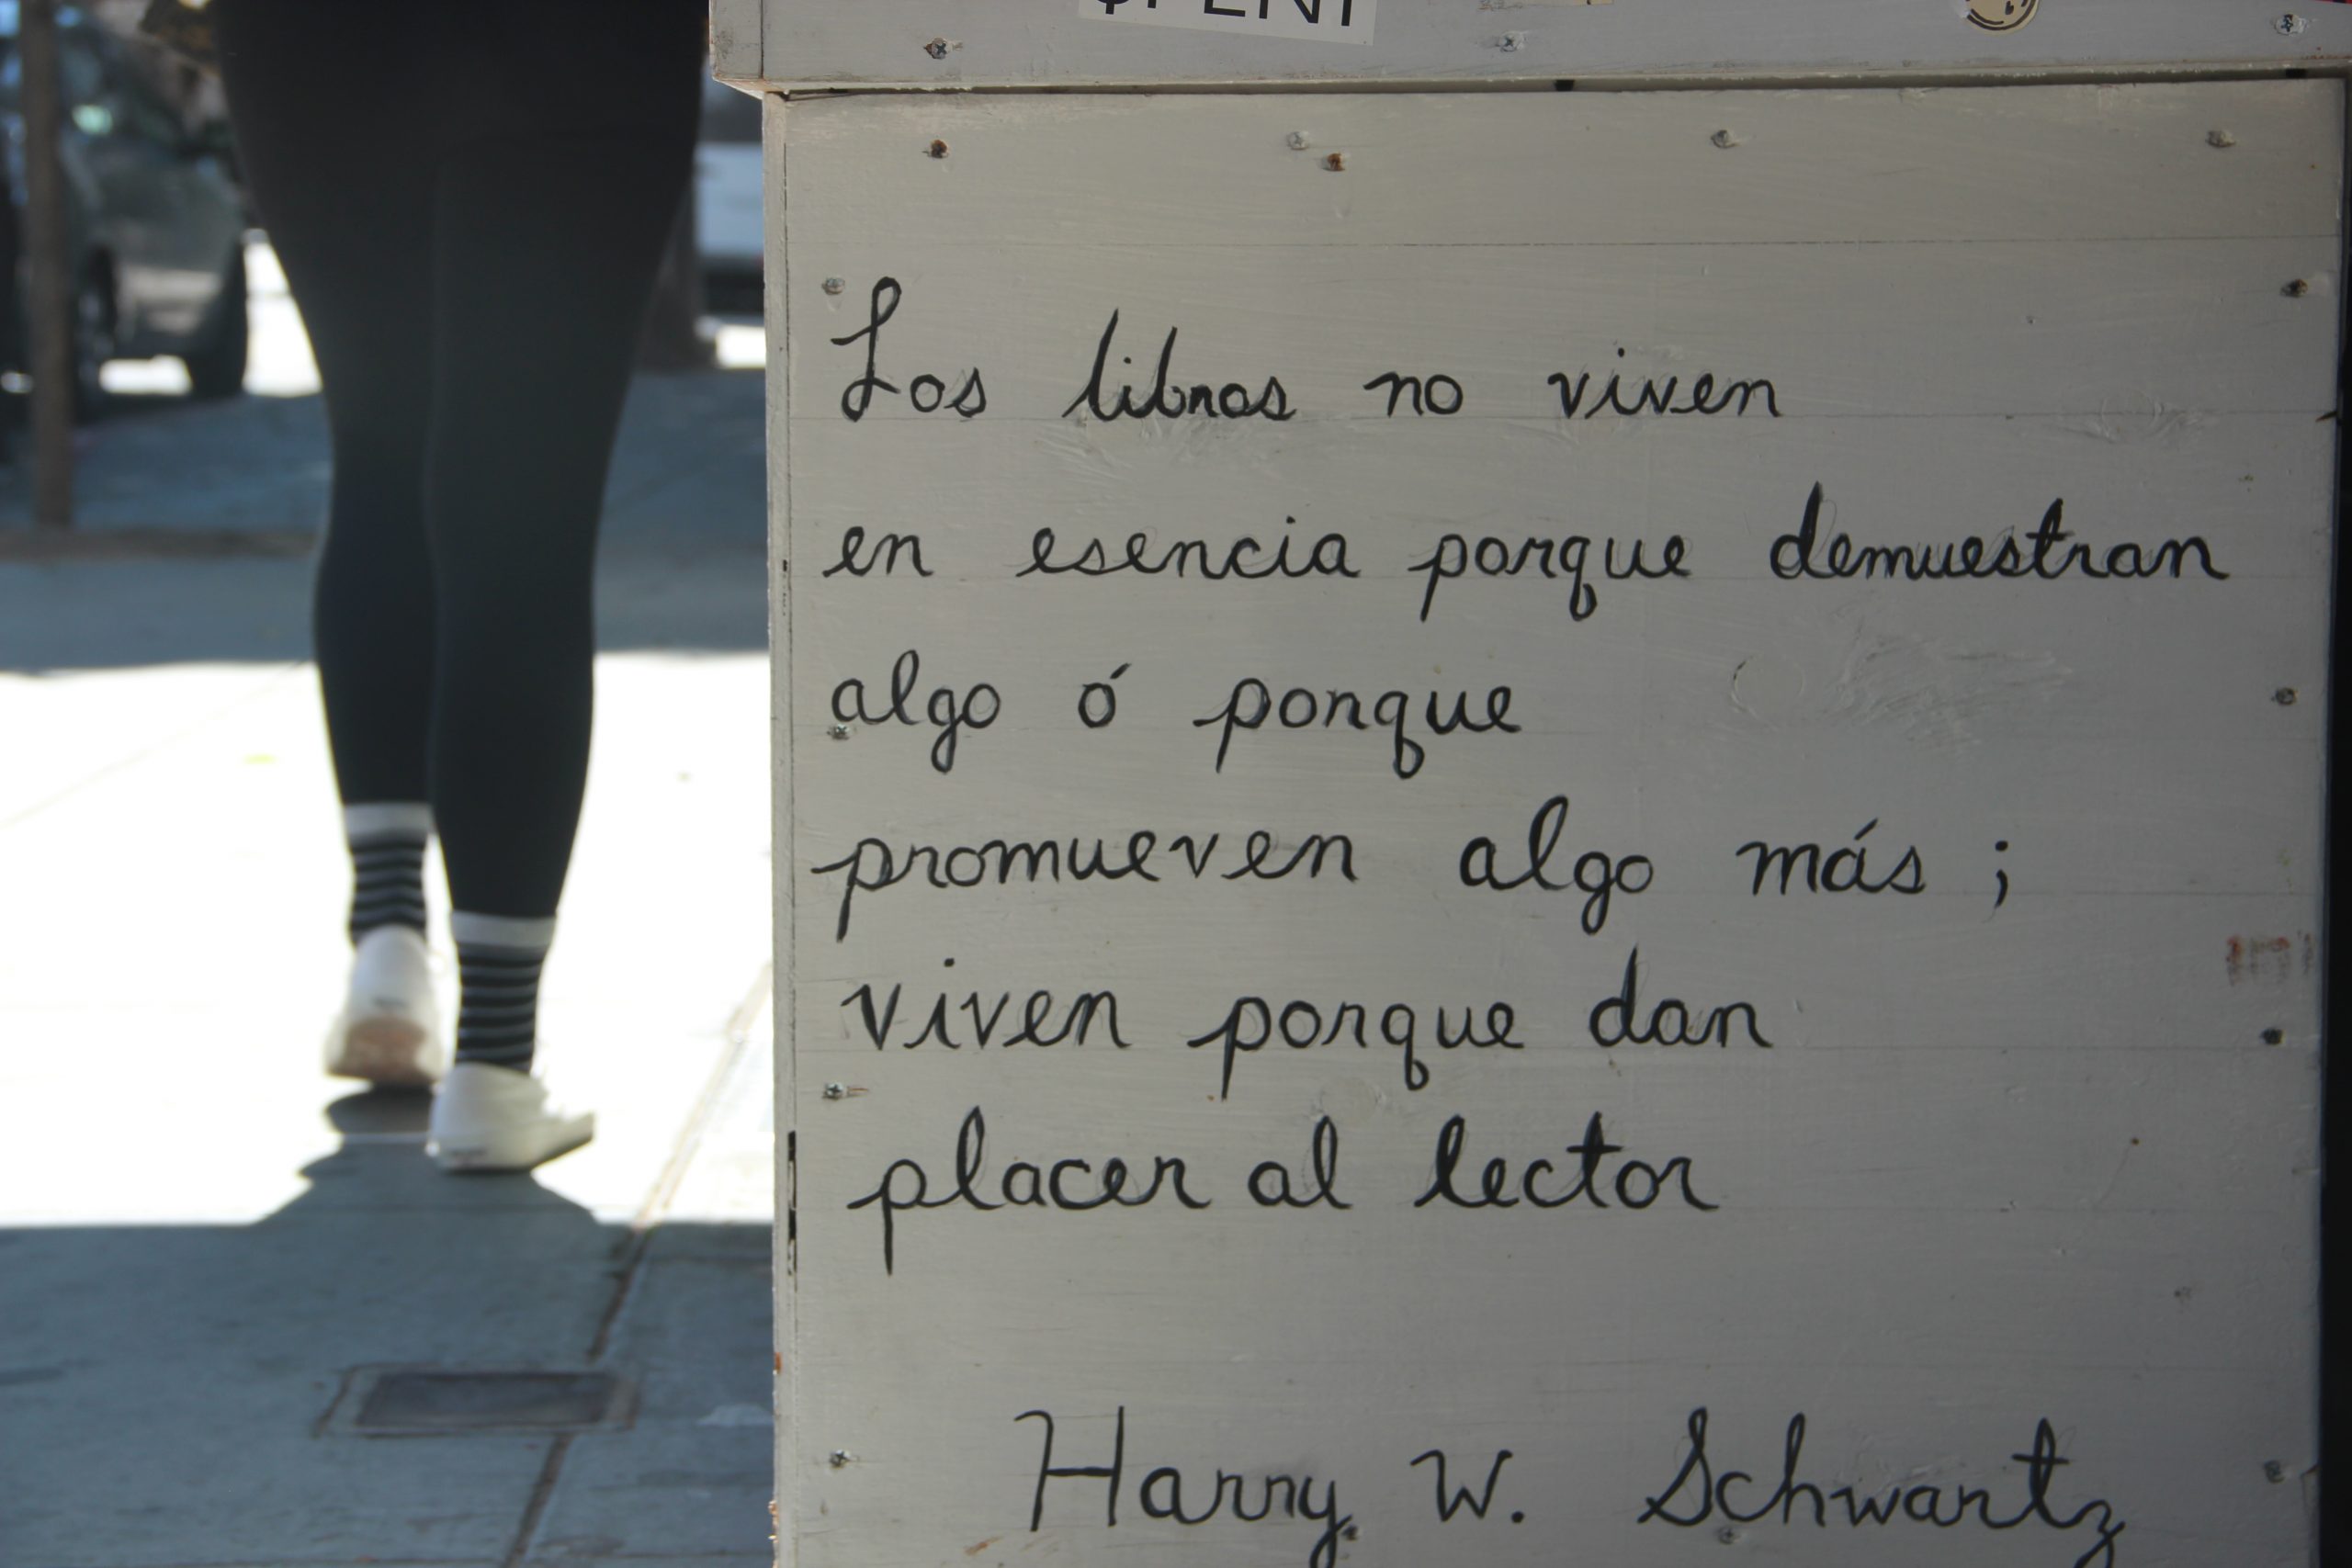 Los libros no viven
en esencia porque demuestran
algo ó porque
promueven algo más ;
viven porque dan
placer al lector
Harry W. Schwartz